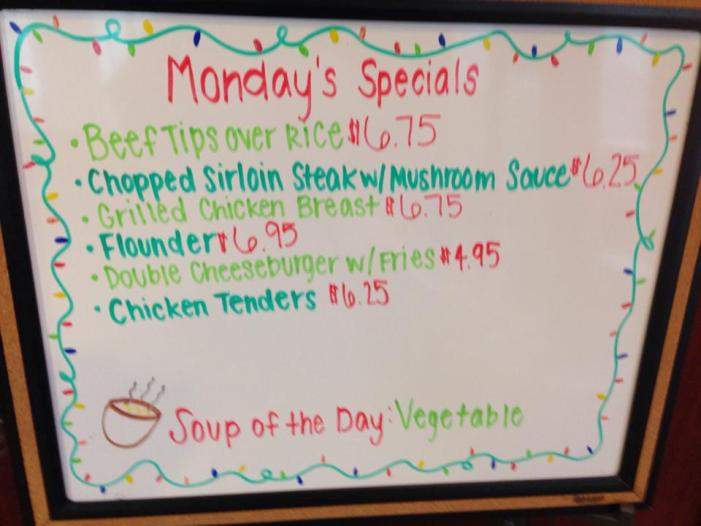 Monday's Specials
• Beef Tips over Rice $6.75
• Chopped Sirloin Steak w/Mushroom Sauce $6.25
• Grilled Chicken Breast $6.75
• Flounder $6.95
• Double Cheeseburger w/Fries $4.95
• Chicken Tenders $6.25
Soup of the Day: Vegetable